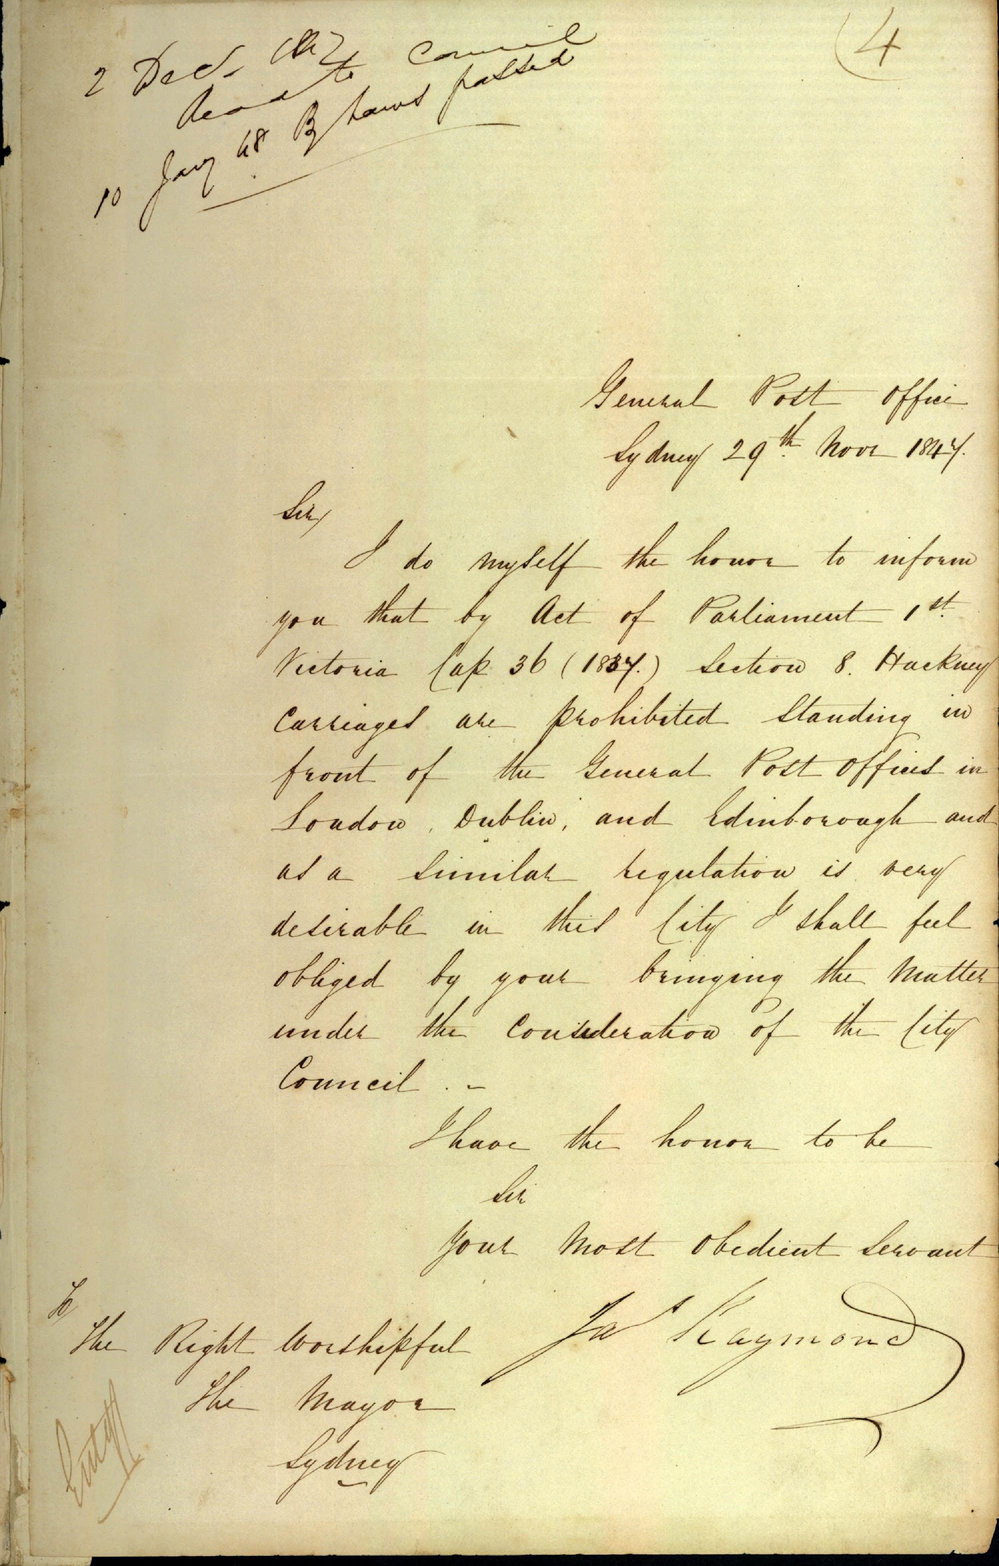 4
2 Decr 1847
Read to Council
10 Jany 48 By Laws passed
General Post Office
Sydney 29th Novr 1847.
Sir,
I do myself the honor to inform
you that by Act of Parliament 1st
Victoria Cap 36 (1837.) Section 8. Hackney
Carriages are prohibited Standing in
front of the General Post Offices in
London, Dublin, and Edinborough and
as a similar regulation is very
desirable in this City I shall feel
obliged by your bringing the Matter
under the Consideration of the City
Council. -
I have the honor to be
Sir
Your Most Obedient Servant
Jas Raymond
To
The Right Worshipful
The Mayor
Sydney